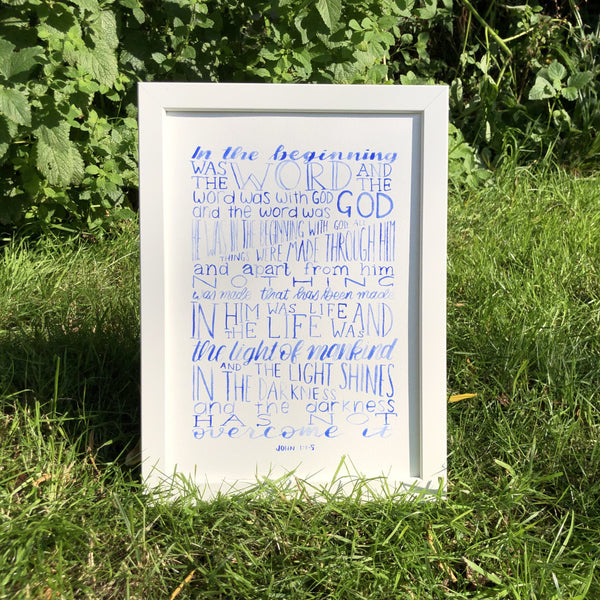 In the beginning
WAS WORD AND
THE THE
word was with GOD
and the word was GOD
HE WAS IN THE BEGINNING WITH GOD ALL
THINGS WERE MADE THROUGH HIM
and apart from him
NOTHING
was made that has been made
IN HIM WAS LIFE AND
THE LIFE WAS
the light of mankind
AND THE LIGHT SHINES
IN THE DARKNESS
and the darkness
HAS NOT
overcome it
JOHN 1:1-5